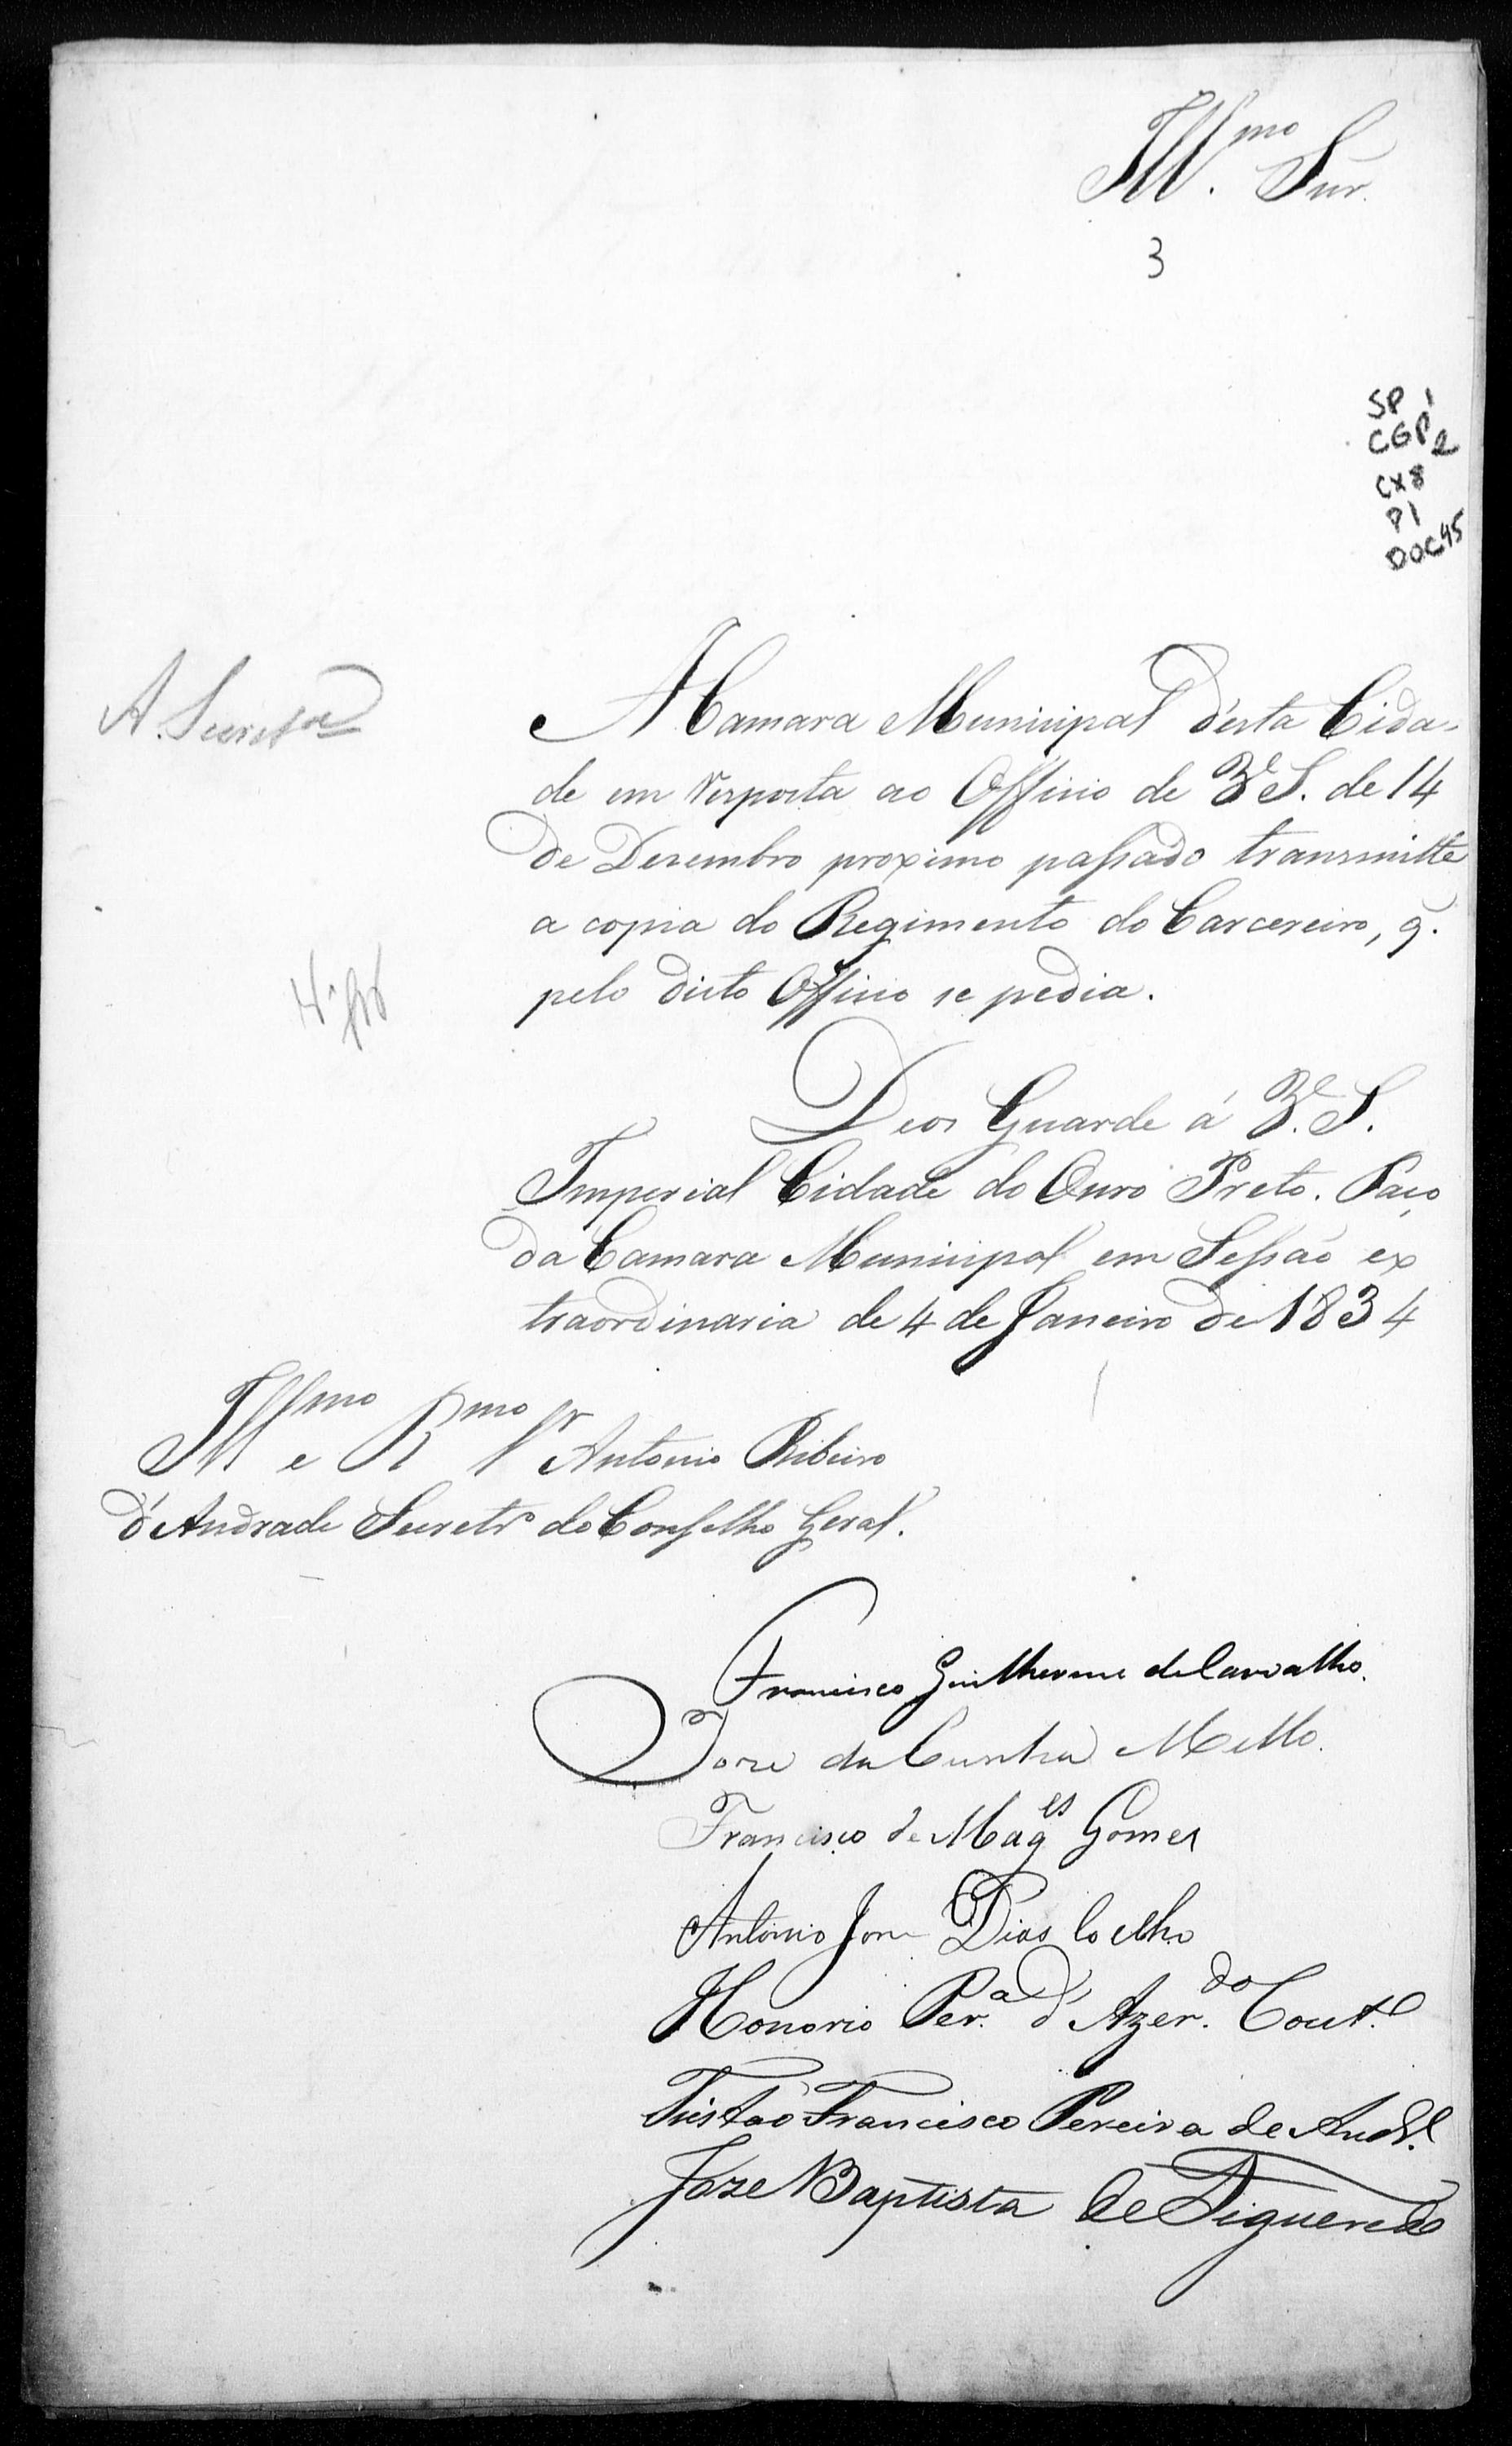 Ill.mo Snr.
3
SP 1
CGP 2
CX 8
P1
DOC 45
A. Secretr.ª
A Camara Municipal d'esta Cida-
de em resposta ao Officio de V.S. de 14
de Dezembro proximo passado transmitte
a copia do Regimento do Carcereiro, q.
pelo dicto Officio se pedia.
Deos Guarde á V.S.
Imperial Cidade do Ouro Preto. Paço
da Camara Municipal em Sessão ex
traordinaria de 4 de Janeiro de 1834
Ill.mo e R.mo Sr. Antonio Ribeiro
d'Andrade Secretr.o do Conselho Geral.
Francisco Guilherme de Carvalho.
Joze da Cunha Mello.
Francisco de Mag.es Gomes
Antonio Joze Dias Coelho
Honorio Per.a d'Azer.do Cout.o
Tristão Francisco Pereira de Andr.e
Joze Baptista de Figueredo